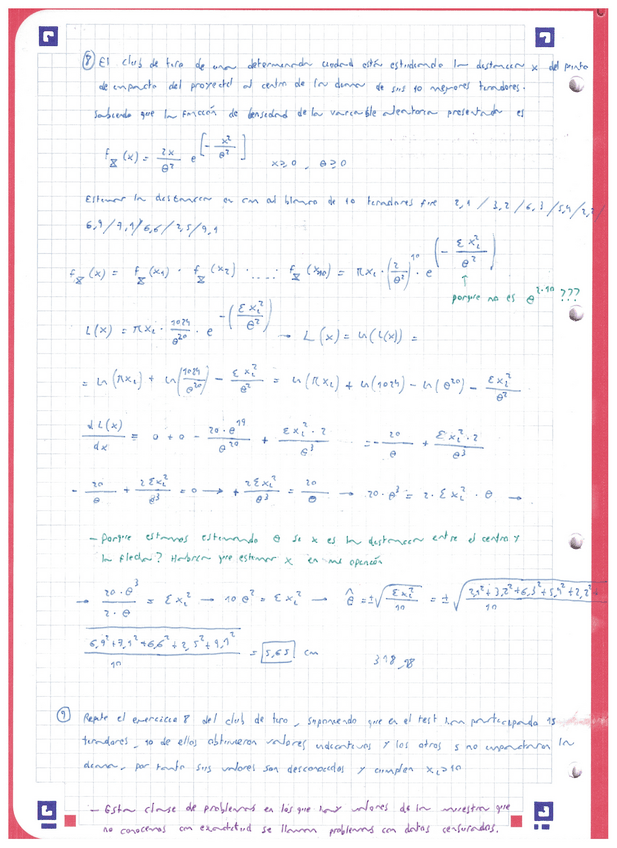 ⑧ El club de tiro de una determinada ciudad está estudiando la distancia x del punto
de impacto del proyectil al centro de la diana de sus 10 mejores tiradores.
Sabiendo que la función de densidad de la variable aleatoria presentada es
f_X (x) = 2x/θ² e^[-x²/θ²]   x≥0 , θ≥0
Estimar la distancia en cm al blanco de 10 tiradores fue 2,1 / 3,2 / 6,3 / 5,9 / 2,2 /
6,9 / 9,9 / 6,6 / 2,5 / 9,1
f_X (x) = f_X (x₁) · f_X (x₂) · ..... · f_X (x₁₀) = πxᵢ · (2/θ²)^10 · e^(-Σxᵢ²/θ²)
porque no es e^2·10 ???
L(x) = πxᵢ · 1024/θ²⁰ · e^-(Σxᵢ²/θ²) → L(x) = ln(L(x)) =
= ln(πxᵢ) + ln(1024/θ²⁰) - Σxᵢ²/θ² = ln(πxᵢ) + ln(1024) - ln(θ²⁰) - Σxᵢ²/θ²
dL(x)/dx = 0 + 0 - 20·θ¹⁹/θ²⁰ + Σxᵢ²·2/θ³ = -20/θ + Σxᵢ²·2/θ³
-20/θ + 2Σxᵢ²/θ³ = 0 → +2Σxᵢ²/θ³ = 20/θ → 20·θ³ = 2·Σxᵢ²·θ →
- Porque estamos estimando θ si x es la distancia entre el centro y
la flecha? Habría que estimar x en mi opinión
→ 20·θ³/2·θ = Σxᵢ² → 10θ² = Σxᵢ² → θ̂ = ±√(Σxᵢ²/10) = ±√(2,1²+3,2²+6,3²+5,9²+2,2²+
6,9²+9,9²+6,6²+2,5²+9,1²/10 = 5,65 cm   318,98
⑨ Repite el ejercicio 8 del club de tiro, suponiendo que en el test han participado 15
tiradores, 10 de ellos obtuvieron valores indicativos y los otros 5 no impactaron la
diana, por tanto sus valores son desconocidos y cumplen xᵢ≥10
- Esta clase de problemas en los que hay valores de la muestra que
no conocemos con exactitud se llaman problemas con datos censurados.